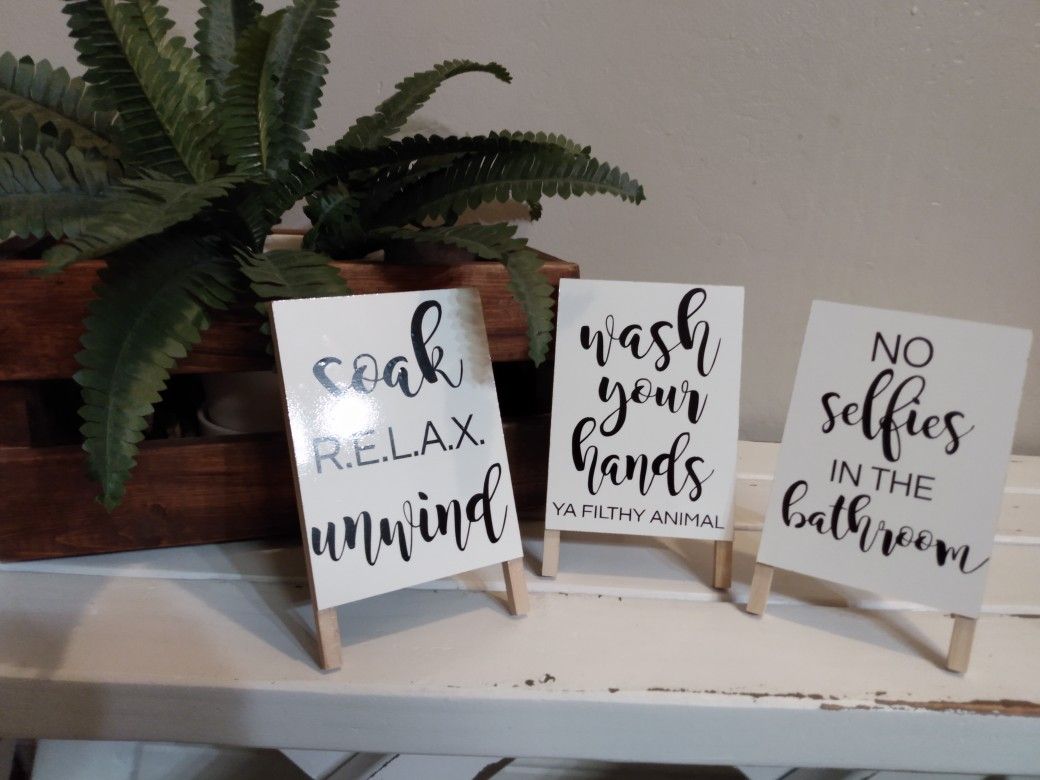 soak
R.E.L.A.X.
unwind
wash
your
hands
YA FILTHY ANIMAL
NO
selfies
IN THE
bathroom